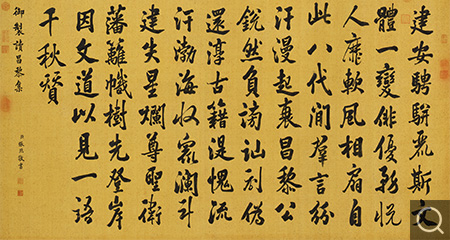 建安騁駢麗斯文
體一變俳優務悅
人靡軟風相扇自
此八代間羣言紛
汗漫起衰昌黎公
銳然負謫訕剗偽
還淳古籍湜愧流
汗渤海收衆瀾斗
建失星爛尊聖衛
藩籬幟樹先登岸
因文道以見一語
千秋贊
御製讀昌黎集
臣張照敬書